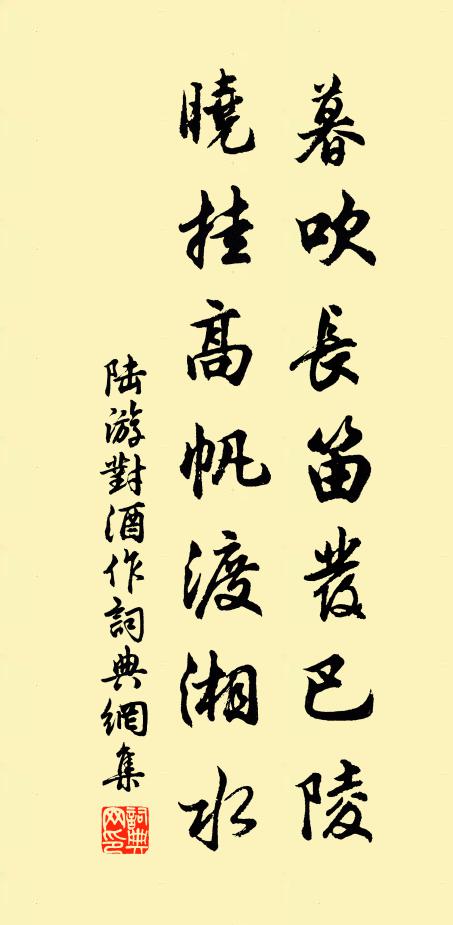 暮吹長笛發巴陵
曉挂高帆渡湘水
陆游對酒作詞典網集
詞典
网印